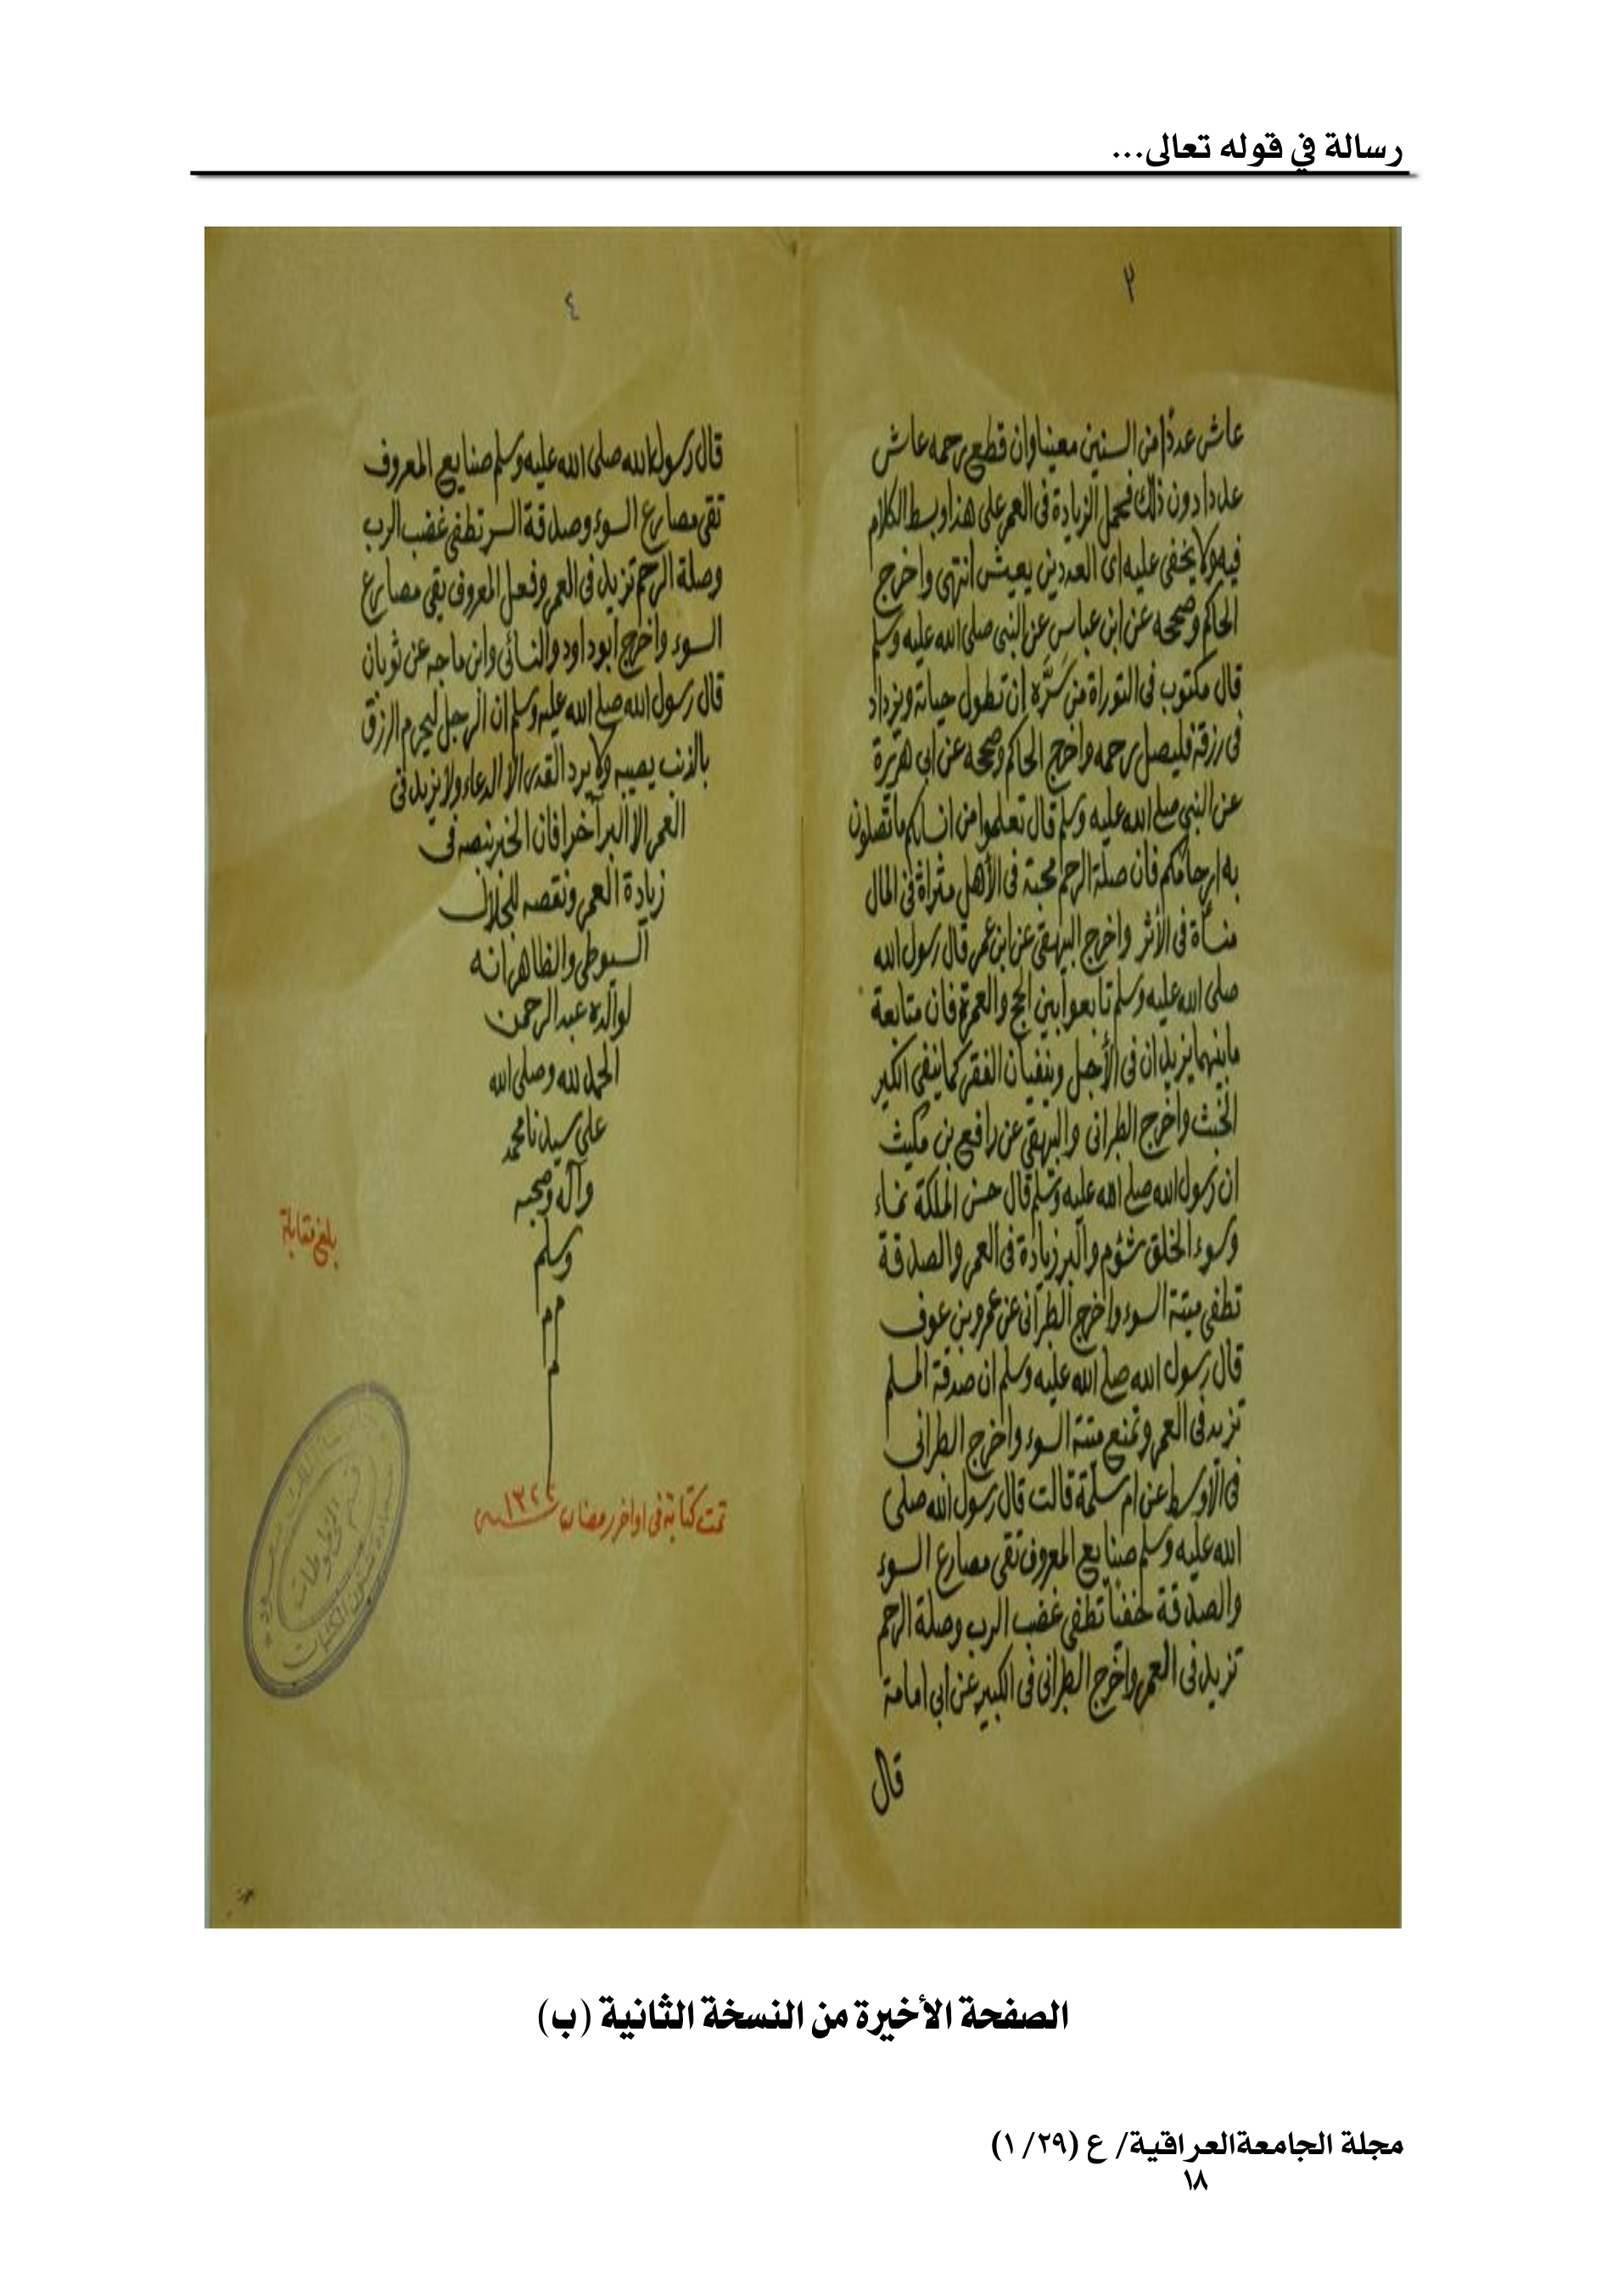 رسالة في قوله تعالى...
٣
عاش عددًا من السنين معينا وان قطع رحمه عاش
عددا دون ذلك فحمل الزيادة فى العمر على هذا وبسط الكلام
فيه ولا يخفى عليه اى العددين يعيش انتهى واخرج
الحاكم وصححه عن ابن عباس عن النبى صلى الله عليه وسلم
قال مكتوب فى التوراة من سَرَّه ان تطول حياته ويزداد
فى رزقه فليصل رحمه واخرج الحاكم وصححه عن ابى هريرة
عن النبي صلى الله عليه وسلم قال تعلموا من انسابكم ما تصلون
به ارحامكم فان صلة الرحم محبة فى الأهل مثراة فى المال
منسأة فى الأثر واخرج البيهقى عن ابن عمر قال رسول الله
صلى الله عليه وسلم تابعوا بين الحج والعمرة فان متابعة
ما بينهما يزيدان فى الأجل وينفيان الفقر كما ينفى الكير
الخبث واخرج الطبرانى والبيهقى عن رافع بن مكيث
ان رسول الله صلى الله عليه وسلم قال حسن الملكة نماء
وسوء الخلق شؤم والبر زيادة فى العمر والصدقة
تطفى ميتة السوء واخرج الطبرانى عن عمرو بن عوف
قال رسول الله صلى الله عليه وسلم ان صدقة المسلم
تزيد فى العمر وتمنع ميتة السوء واخرج الطبرانى
فى الأوسط عن ام سلمة قالت قال رسول الله صلى
الله عليه وسلم صنايع المعروف تقى مصارع السوء
والصدقة خفيا تطفى غضب الرب وصلة الرحم
تزيد فى العمر واخرج الطبرانى فى الكبير عن ابى امامة
قال
٤
قال رسول الله صلى الله عليه وسلم صنايع المعروف
تقى مصارع السوء وصدقة السر تطفى غضب الرب
وصلة الرحم تزيد فى العمر وفعل المعروف يقى مصارع
السوء واخرج ابو داود والنسائى وابن ماجه عن ثوبان
قال رسول الله صلى الله عليه وسلم ان الرجل ليحرم الرزق
بالذنب يصيبه ولا يرد القدر الا الدعاء ولا يزيد فى
العمر الا البر آخر افان الخبر بنصه فى
زيادة العمر ونقصه للجلال
السيوطى والظاهر انه
لوالده عبد الرحمن
الحمد لله وصلى الله
على سيدنا محمد
وآله وصحبه
وسلم
م م
م
بلغ مقابلة
تمت كتابة فى اواخر رمضان سنة ١٣٤٤
قسم المخطوطات
الصفحة الأخيرة من النسخة الثانية (ب)
مجلة الجامعةالعراقية/ ع (٢٩/ ١)
١٨